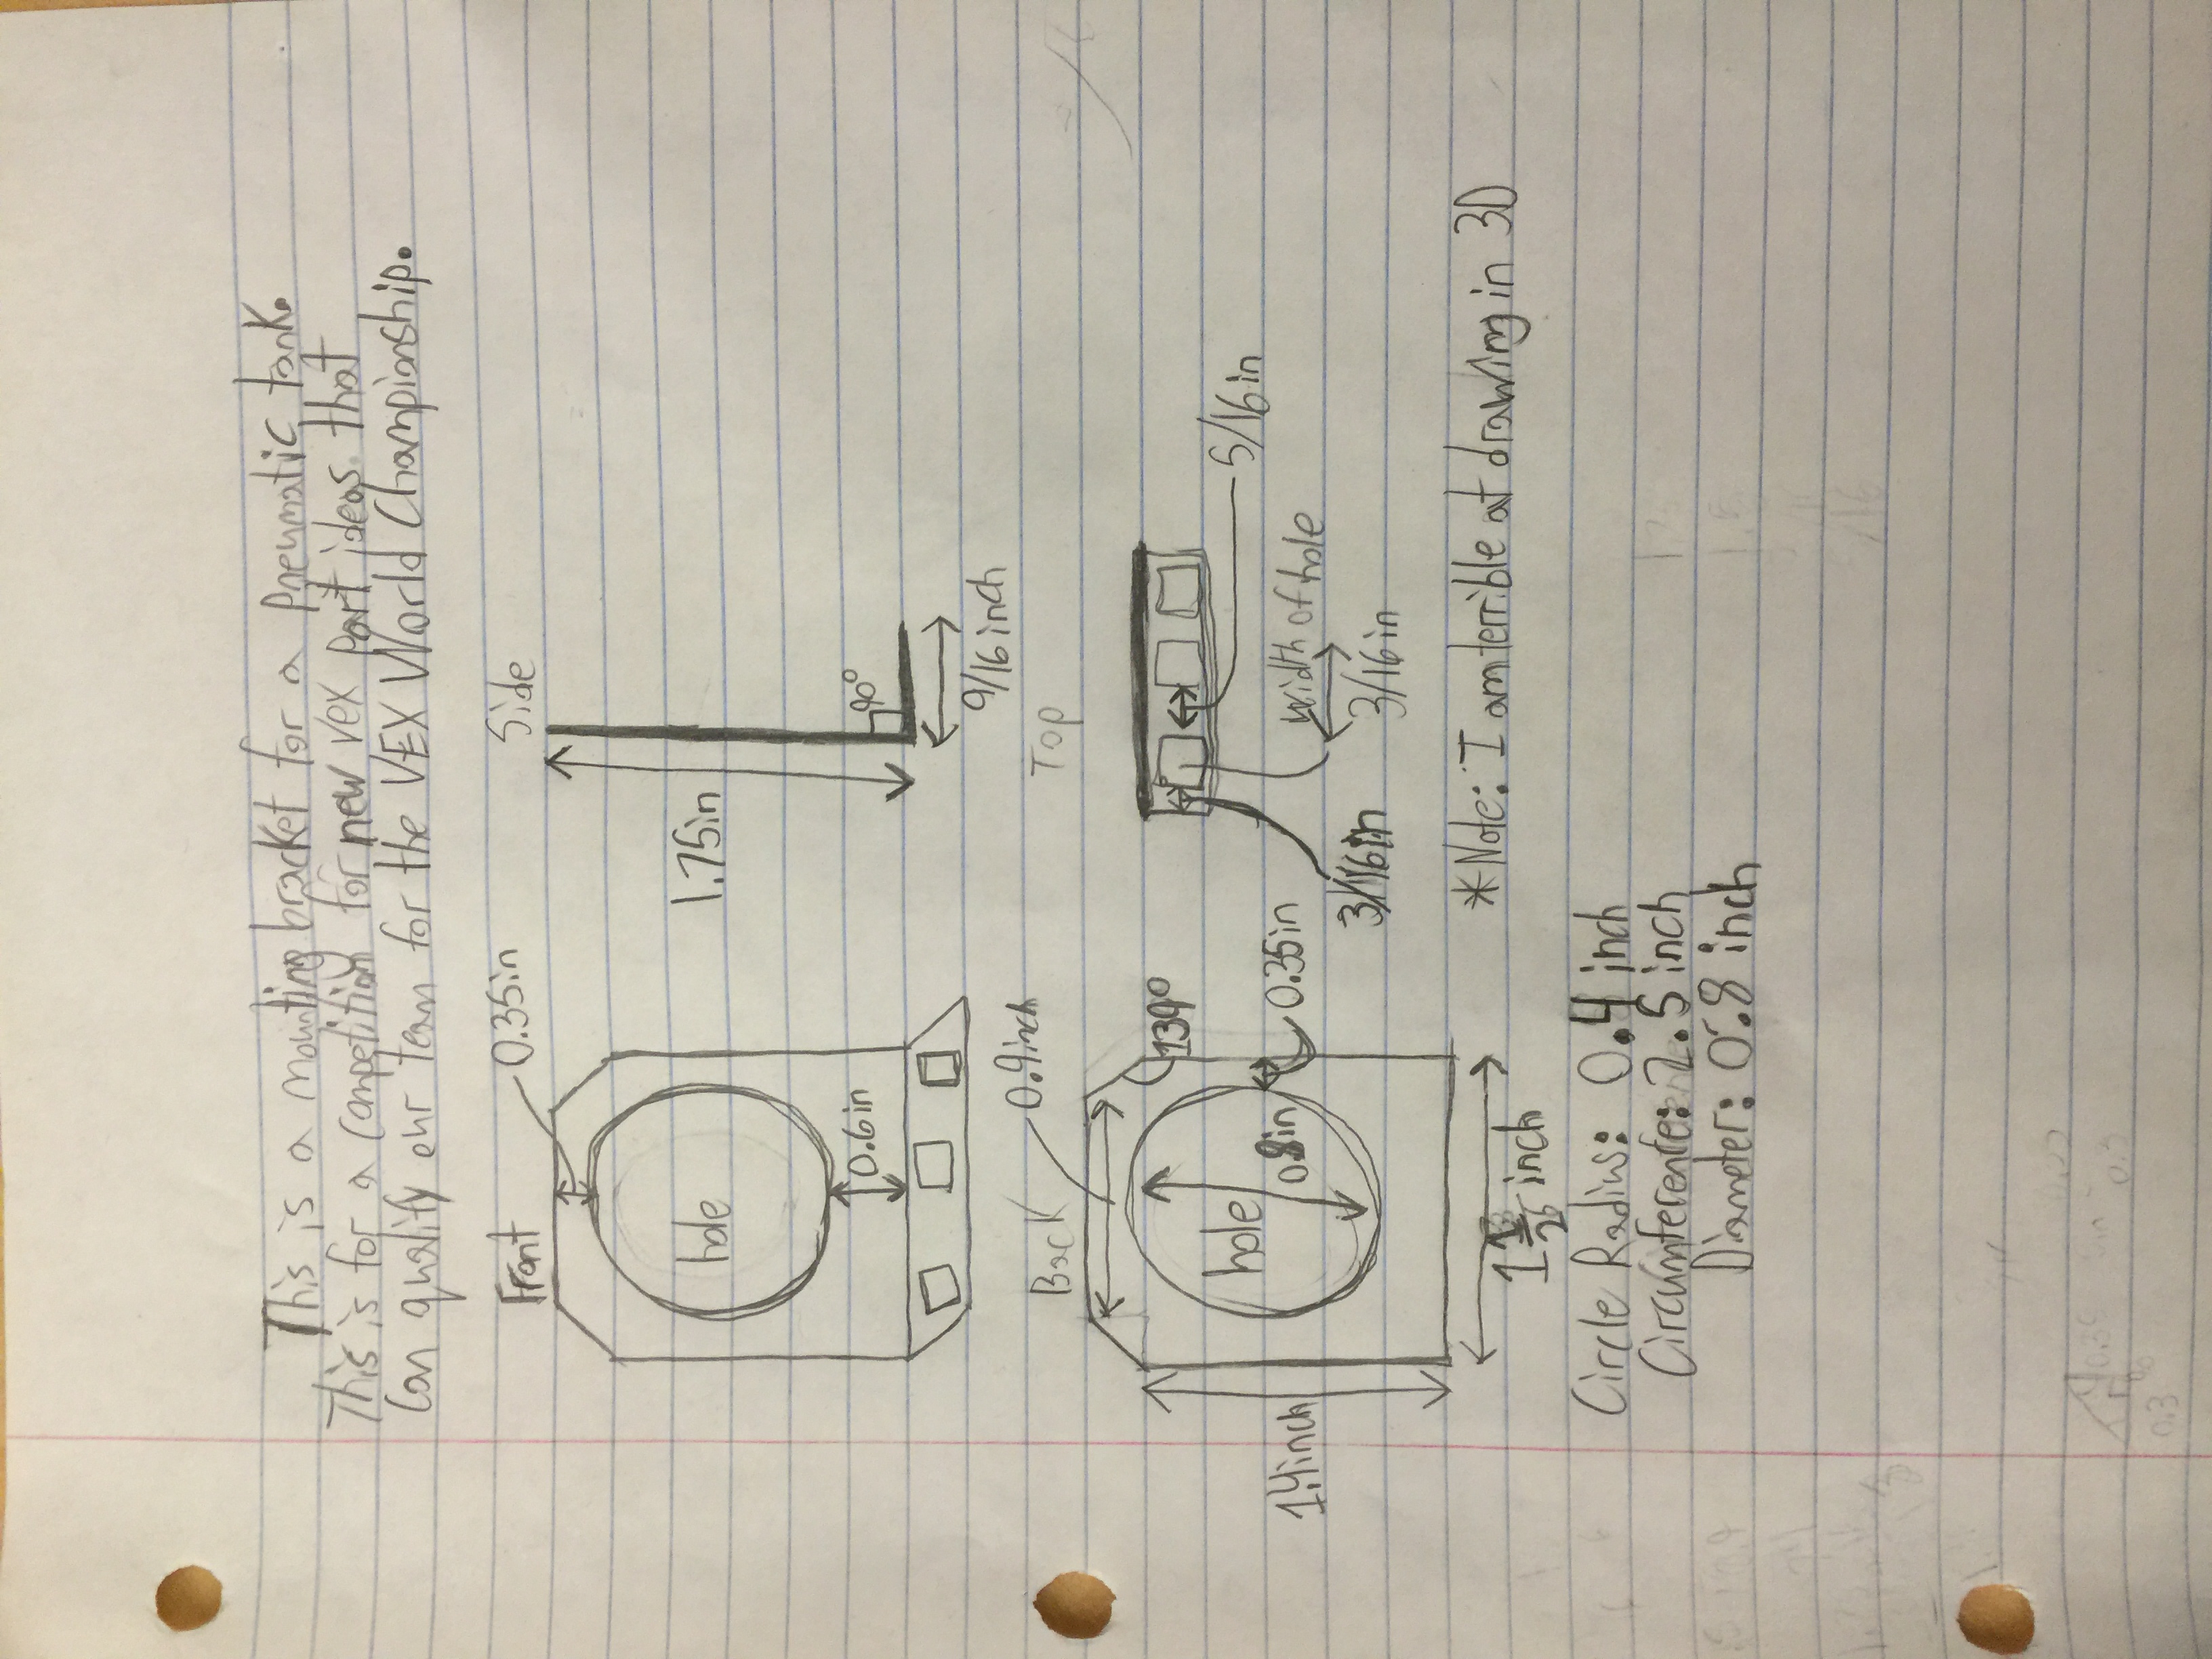 This is a mounting bracket for a pneumatic tank.
This is for a competition for new vex part ideas that
can qualify our team for the VEX World Championship.
Front
0.35in
Side
hole
0.6in
1.75in
90°
9/16 inch
Back
0.9inch
Top
139°
hole
0.8in
0.35in
1.4inch
1 inch
3/16in
width of hole
3/16in
5/16in
*Note: I am terrible at drawing in 3D
Circle Radius: 0.4 inch
Circumference: 2.5 inch
Diameter: 0.8 inch
0.3